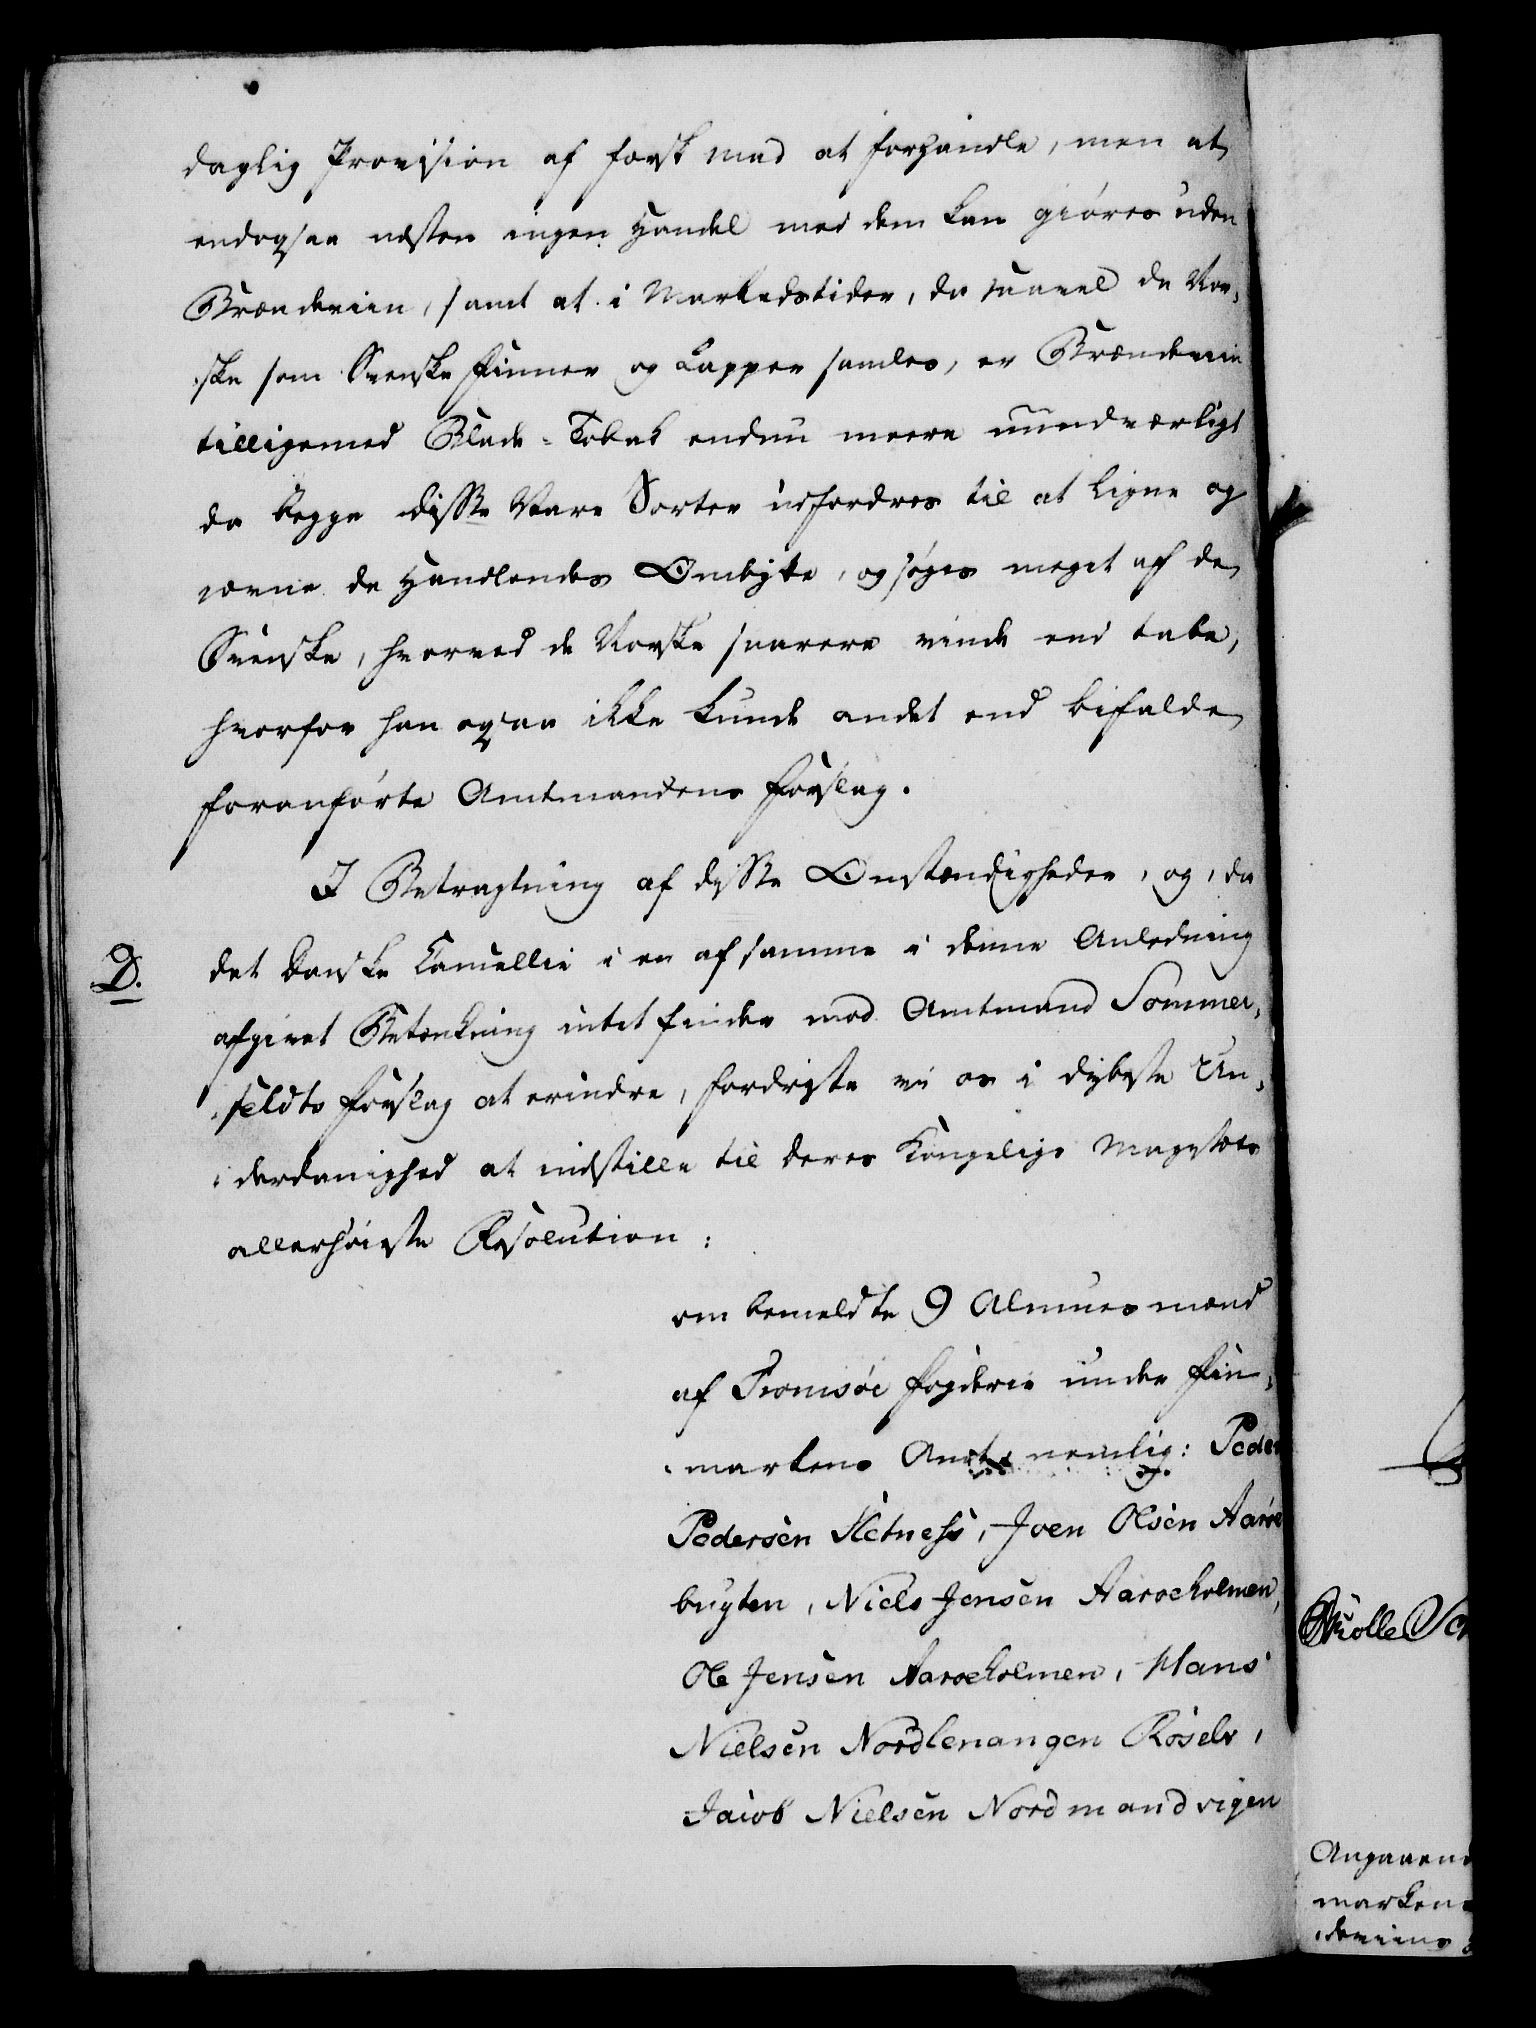 daglig Provision af fersk mad at forhandle, men at
endogsaa næsten ingen Handel med dem kan giøres uden
Brændeviin, samt at i Markedstider, da saavel de Nor-
ske som Svenske Finner og Lapper samles, er Brændeviin
tilligemed Blade-Tobak endnu meere uundværligt
da begge disse Vare Sorter udfordres til at ligne og
jævne de Handlendes Ombytte, og søges meget af de
Svenske, hvorved de Norske snarere vinde end tabe,
hvorfor han ogsaa ikke kunde andet end bifalde
foranførte Amtmandens Forslag.
I Betragtning af disse Omstændigheder, og, da
D.
det danske Cancellie i en af samme i denne Anledning
afgivet Betænkning intet finder mod Amtmand Sommer-
feldts Forslag at erindre, fordriste vi os i dybeste Un-
derdanighed at indstille til Deres Kongelige Majestæts
allerhøieste Resolution:
om bemeldte 9 Almuesmænd
af Tromsøe Fogderie under Fin-
markens Amt nemlig: Peder
Pedersen Sletness, Joen Olsen Aaroe
bugten, Niels Jensen Aaroeholmen,
Ole Jensen Aaroeholmen, Hans
Nielsen Nordlenangen Roselv,
Jacob Nielsen Nordmandvigen
Molle
Angaaen
marken